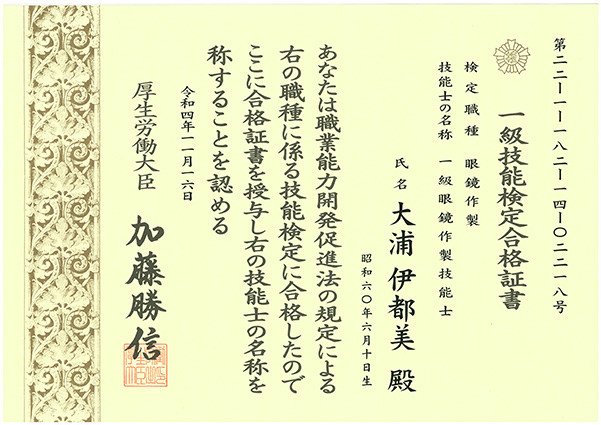 第二二ー一ー一八二ー一四ー〇二二一八号
一級技能検定合格証書
検定職種 眼鏡作製
技能士の名称 一級眼鏡作製技能士
氏名 大浦 伊都美 殿
昭和六〇年六月十日生
あなたは職業能力開発促進法の規定による
右の職種に係る技能検定に合格したので
ここに合格証書を授与し右の技能士の名称を
称することを認める
令和四年一一月一六日
厚生労働大臣
加藤勝信